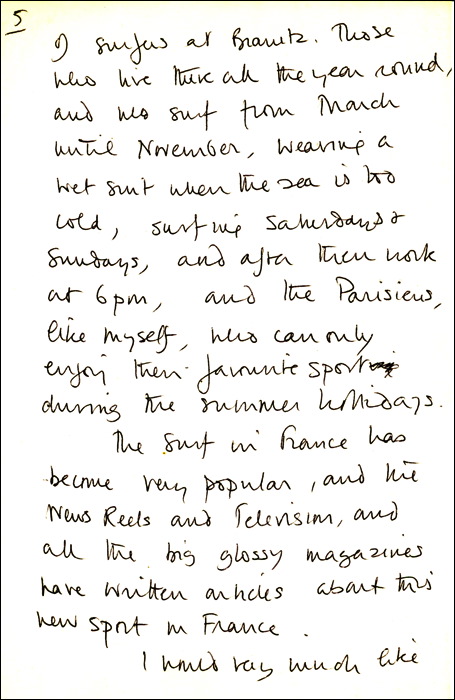 5
of surfers at Biarritz. Those
who live there all the year round,
and who surf from March
until November, wearing a
wet suit when the sea is too
cold, surfing Saturdays &
Sundays, and after their work
at 6 pm, and the Parisiens,
like myself, who can only
enjoy their favourite sport
during the summer hollidays.
The Surf in France has
become very popular, and the
News Reels and Television, and
all the big glossy magazines
have written articles about this
new sport in France.
I would very much like